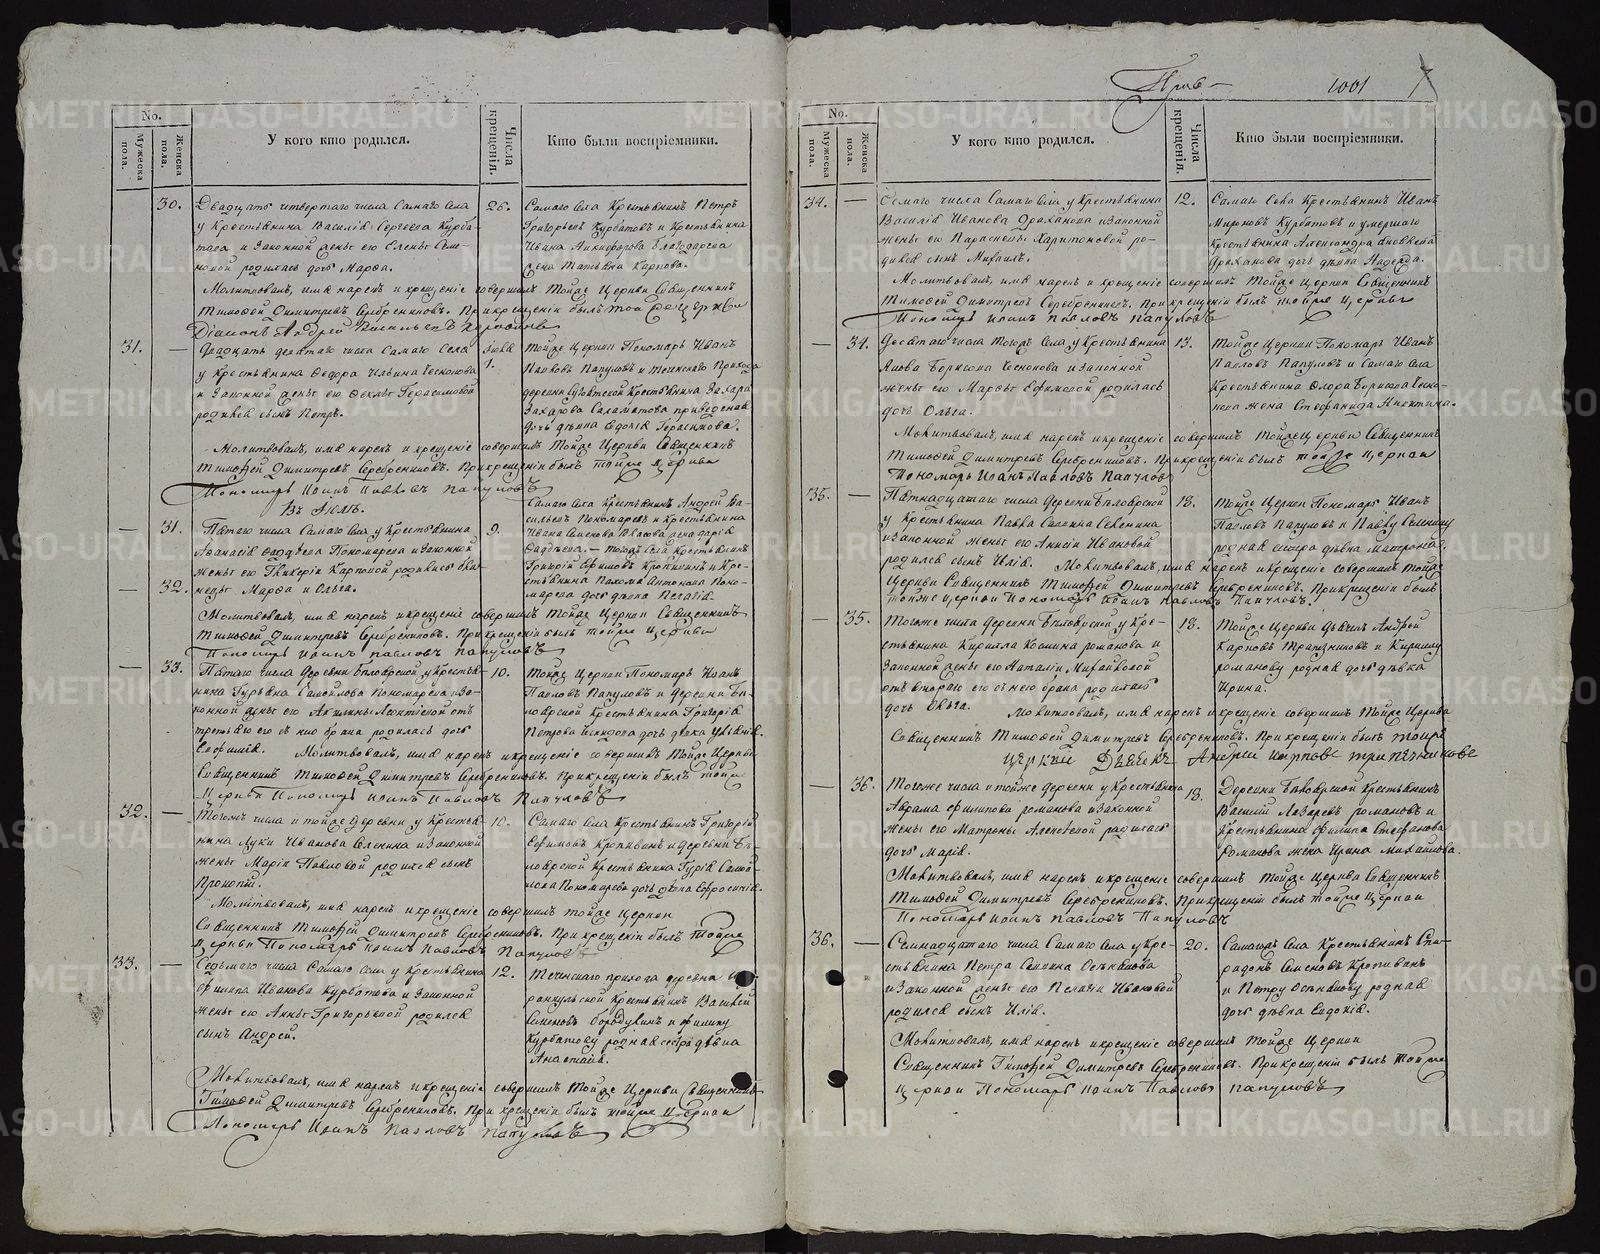 No.
Мужеска пола.
Женска пола.
У кого кто родился.
Числа крещенія.
Кто были воспріемники.
30.
Двадцать четвертаго числа Самаго Села
у Крестьянина Василія Сергеева Курба-
това и Законной жены его Елены Семе-
новой родилась дочь Марѳа.
26.
Самаго Села Крестьянинъ Петръ
Григорьевъ Курбатовъ и Крестьянина
Ивана Никифорова
жена Татьяна Карпова.
Молитвовалъ, имя нарекъ и крещеніе совершилъ Тойже Церкви Священникъ
Тимоѳей Димитріевъ Серебрениковъ. При крещеніи былъ той же церкви
Діаконъ Андрей Васильевъ
31.
—
Двадцать девятаго числа Самаго Села
у Крестьянина Ѳедора Ильина
и Законной жены его Ѳеклы Герасимовой
родился сынъ Петръ.
Іюля
1.
Тойже Церкви Пономарь Иванъ
Павловъ Папуловъ и Теченскаго Прихода
деревни Крестьянина Захара
Захарова
дочь дѣвка Евдокія Герасимова.
Молитвовалъ, имя нарекъ и крещеніе совершилъ Тойже Церкви Священникъ
Тимоѳей Димитріевъ Серебрениковъ. При крещеніи былъ тойже церкви
Пономарь Иоанъ Павловъ Папуловъ
Въ Іюлѣ.
—
31.
Пятаго числа Самаго Села у Крестьянина
Аѳанасія Ѳаддѣева Пономарева и Законной
жены его Гликеріи Карповой родились близ-
—
32.
нецы Марѳа и Ольга.
9.
Самаго Села Крестьянинъ Андрей Ва-
сильевъ Пономаревъ и Крестьянина
Ивана Семенова
Ѳаддѣева. — тогожъ Села Крестьянинъ
Григорій Ефимовъ Кропивинъ и Кре-
стьянина Пахома Антонова Поно-
марева дочь дѣвка Пелагія.
Молитвовалъ, имя нарекъ и крещеніе совершилъ Тойже Церкви Священникъ
Тимоѳей Димитріевъ Серебрениковъ. При крещеніи былъ тойже церкви
Пономарь Иоанъ Павловъ Папуловъ
—
33.
Пятаго числа Деревни Бѣлоярской у Крестья-
нина Гурьяна Самойлова Пономарева и за-
конной жены его Акилины Леонтіевой отъ
третьяго его съ нею брака родилась дочь
Евфимія.
10.
Тойже Церкви Пономарь Иванъ
Павловъ Папуловъ и Деревни Бѣ-
лоярской Крестьянина Григорія
Петрова дочь дѣвка
Молитвовалъ, имя нарекъ и крещеніе совершилъ Тойже Церкви
Священникъ Тимоѳей Димитріевъ Серебрениковъ. При крещеніи былъ тойже
Церкви Пономарь Иоанъ Павловъ Папуловъ
32.
—
Тогожъ числа и тойже Деревни у Крестья-
нина Луки Иванова Селенина и Законной
жены Маріи Павловой родился сынъ
Прокопій.
10.
Самаго Села Крестьянинъ Григорій
Ефимовъ Кропивинъ и Деревни Бѣ-
лоярской Крестьянина Гурія Самой-
лова Пономарева дочь дѣвка Ефросинія.
Молитвовалъ, имя нарекъ и крещеніе совершилъ Тойже Церкви
Священникъ Тимоѳей Димитріевъ Серебрениковъ. При крещеніи былъ Тойже
Церкви Пономарь Иоанъ Павловъ Папуловъ
33.
—
Седьмаго числа Самаго Села у Крестьянина
Филипа Иванова Курбатова и Законной
жены его Анны Григорьевой родился
сынъ Андрей.
12.
Теченскаго прихода деревни
Крестьянинъ Василій
Семеновъ Бородулинъ и Филипу
Курбатову родная сестра дѣвка
Анастасія.
Молитвовалъ, имя нарекъ и крещеніе совершилъ Тойже Церкви Священникъ
Тимоѳей Димитріевъ Серебрениковъ. При крещеніи былъ тойже церкви
Пономарь Иоанъ Павловъ Папуловъ
1001
No.
Мужеска пола.
Женска пола.
У кого кто родился.
Числа крещенія.
Кто были воспріемники.
34.
—
Осмаго числа Самаго Села у Крестьянина
Василія Иванова Драханова и Законной
жены его Параскевы Харитоновой ро-
дился сынъ Михаилъ.
12.
Самаго Села Крестьянинъ Иванъ
Мироновъ Курбатовъ и умершаго
Крестьянина Александра Яковлева
Драханова дочь дѣвка Надежда.
Молитвовалъ, имя нарекъ и крещеніе совершилъ Тойже Церкви Священникъ
Тимоѳей Димитріевъ Серебрениковъ. При крещеніи былъ тойже церкви
Пономарь Иоанъ Павловъ Папуловъ
—
34.
Десятаго числа тогожъ Села у Крестьянина
Якова Борисова и Законной
жены его Марѳы Ефимовой родилась
дочь Ольга.
13.
Тойже Церкви Пономарь Иванъ
Павловъ Папуловъ и Самаго Села
Крестьянина Ѳедора Борисова
жена Стефанида Никитина.
Молитвовалъ, имя нарекъ и крещеніе совершилъ Тойже Церкви Священникъ
Тимоѳей Димитріевъ Серебрениковъ. При крещеніи былъ тойже церкви
Пономарь Иоанъ Павловъ Папуловъ
35.
—
Пятнадцатаго числа Деревни Бѣлоярской
у Крестьянина Павла Селенина
и Законной жены его Анисіи Ивановой
родился сынъ Илія.
18.
Тойже Церкви Пономарь Иванъ
Павловъ Папуловъ и Павлу Селенину
родная сестра дѣвка Матрона.
Молитвовалъ, имя нарекъ и крещеніе совершилъ Тойже
Церкви Священникъ Тимоѳей Димитріевъ Серебрениковъ. При крещеніи былъ
тойже церкви Пономарь Иоанъ Павловъ Папуловъ.
—
35.
Тогоже числа деревни Бѣлоярской у Кре-
стьянина Кирилла Козмина Романова и
Законной жены его Наталіи Михайловой
отъ втораго его съ нею брака родилась
дочь Ольга.
18.
Тойже Церкви дьячекъ Андрей
Карповъ Трапезниковъ и Кириллу
Романову родная дочь дѣвка
Ирина.
Молитвовалъ, имя нарекъ и крещеніе совершилъ Тойже Церкви
Священникъ Тимоѳей Димитріевъ Серебрениковъ. При крещеніи былъ тойже
церкви Дьячекъ Андрей Карповъ Трапезниковъ
—
36.
Тогоже числа и тойже деревни у Крестьянина
Аврама Филипова Романова и Законной
жены его Матроны Алексѣевой родилась
дочь Марія.
18.
Деревни Бѣлоярской Крестьянинъ
Василій Лазаревъ Романовъ и
Крестьянина Филипа Стефанова
Романова жена Ирина Михайлова.
Молитвовалъ, имя нарекъ и крещеніе совершилъ Тойже Церкви Священникъ
Тимоѳей Димитріевъ Серебрениковъ. При крещеніи былъ тойже Церкви
Пономарь Иоанъ Павловъ Папуловъ
36.
—
Семнадцатаго числа Самаго Села у Кре-
стьянина Петра Семенова
и Законной жены его Пелагіи Ивановой
родился сынъ Илія.
20.
Самагожъ Села Крестьянинъ Спи-
ридонъ Семеновъ Кропивинъ
и Петру родная
дочь дѣвка Евдокія.
Молитвовалъ, имя нарекъ и крещеніе совершилъ Тойже Церкви
Священникъ Тимоѳей Димитріевъ Серебрениковъ. При крещеніи былъ тойже
церкви Пономарь Иоанъ Павловъ Папуловъ
METRIKI.GASO-URAL.RU